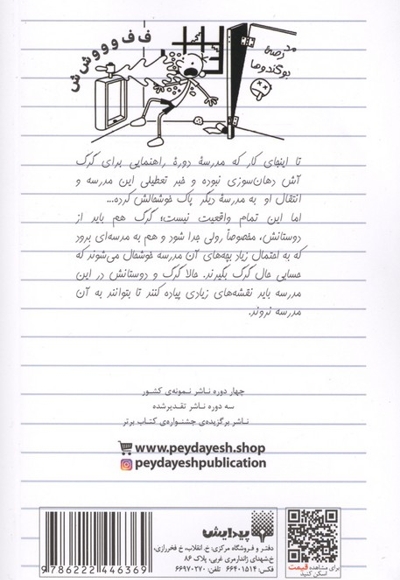 ف ف وووش ش ش
مدرسه
بوگندوها
تا اینجای کار که مدرسهٔ دورهٔ راهنمایی برای گرگ
آش دهان‌سوزی نبوده و خبر تعطیلی این مدرسه و
انتقال او به مدرسهٔ دیگر پاک خوشحالش کرده...
اما این تمام واقعیت نیست؛ گرگ هم باید از
دوستانش، مخصوصاً رولی جدا شود و هم به مدرسه‌ای برود
که به احتمال زیاد بچه‌های آن مدرسه خوشحال می‌شوند که
حسابی حال گرگ بگیرند. حالا گرگ و دوستانش در این
مدرسه باید نقشه‌های زیادی پیاده کنند تا بتوانند به آن
مدرسه نروند.
چهار دوره ناشر نمونه‌ی کشور
سه دوره ناشر تقدیرشده
ناشر برگزیده‌ی جشنواره‌ی کتاب برتر
www.peydayesh.shop
peydayeshpublication
9786222446369
پیدایش
دفتر و فروشگاه مرکزی: خ. انقلاب، خ فخررازی،
خ شهدای ژاندارمری غربی، پلاک ۸۶
فکس: ۶۶۴۰۱۵۱۴ ۶۶۹۷۰۲۷۰
برای مشاهده قیمت
اسکن کنید